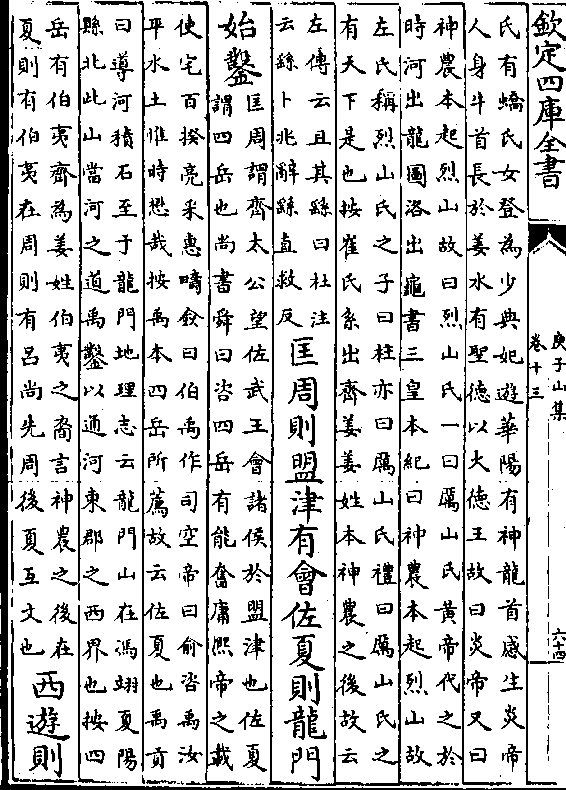 欽定四庫全書
庾子山集
卷十三
六十四
氏有蟜氏女登為少典妃遊華陽有神龍首感生炎帝
人身牛首長於姜水有聖德以火德王故曰炎帝又曰
神農本起烈山故曰烈山氏一曰厲山氏黄帝代之於
時河出龍圖洛出龜書三皇本紀曰神農本起烈山故
左氏稱烈山氏之子曰柱亦曰厲山氏禮曰厲山氏之
有天下是也按崔氏系出齊姜姜姓本神農之後故云
左傳云且其繇曰杜注
云繇卜兆辭繇直救反
匡周則盟津有會佐夏則龍門
始鑿
匡周謂齊太公望佐武王會諸侯於盟津也佐夏
謂四岳也尚書舜曰咨四岳有能奮庸熙帝之載
使宅百揆亮采惠疇僉曰伯禹作司空帝曰俞咨禹汝
平水土惟時懋哉按禹本四岳所薦故云佐夏也禹貢
曰導河積石至于龍門地理志云龍門山在馮翊夏陽
縣北此山當河之道禹鑿以通河東郡之西界也按四
岳有伯夷齊為姜姓伯夷之裔言神農之後在
夏則有伯夷在周則有吕尚先周後夏互文也
西遊則